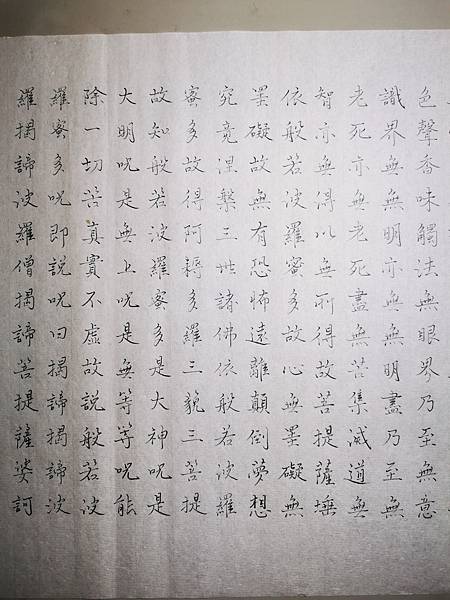 色聲香味觸法無眼界乃至無意
識界無無明亦無無明盡乃至無
老死亦無老死盡無苦集滅道無
智亦無得以無所得故菩提薩埵
依般若波羅蜜多故心無罣礙無
罣礙故無有恐怖遠離顛倒夢想
究竟涅槃三世諸佛依般若波羅
蜜多故得阿耨多羅三藐三菩提
故知般若波羅蜜多是大神呪是
大明呪是無上呪是無等等呪能
除一切苦真實不虛故說般若波
羅蜜多呪即說呪曰揭諦揭諦波
羅揭諦波羅僧揭諦菩提薩婆訶